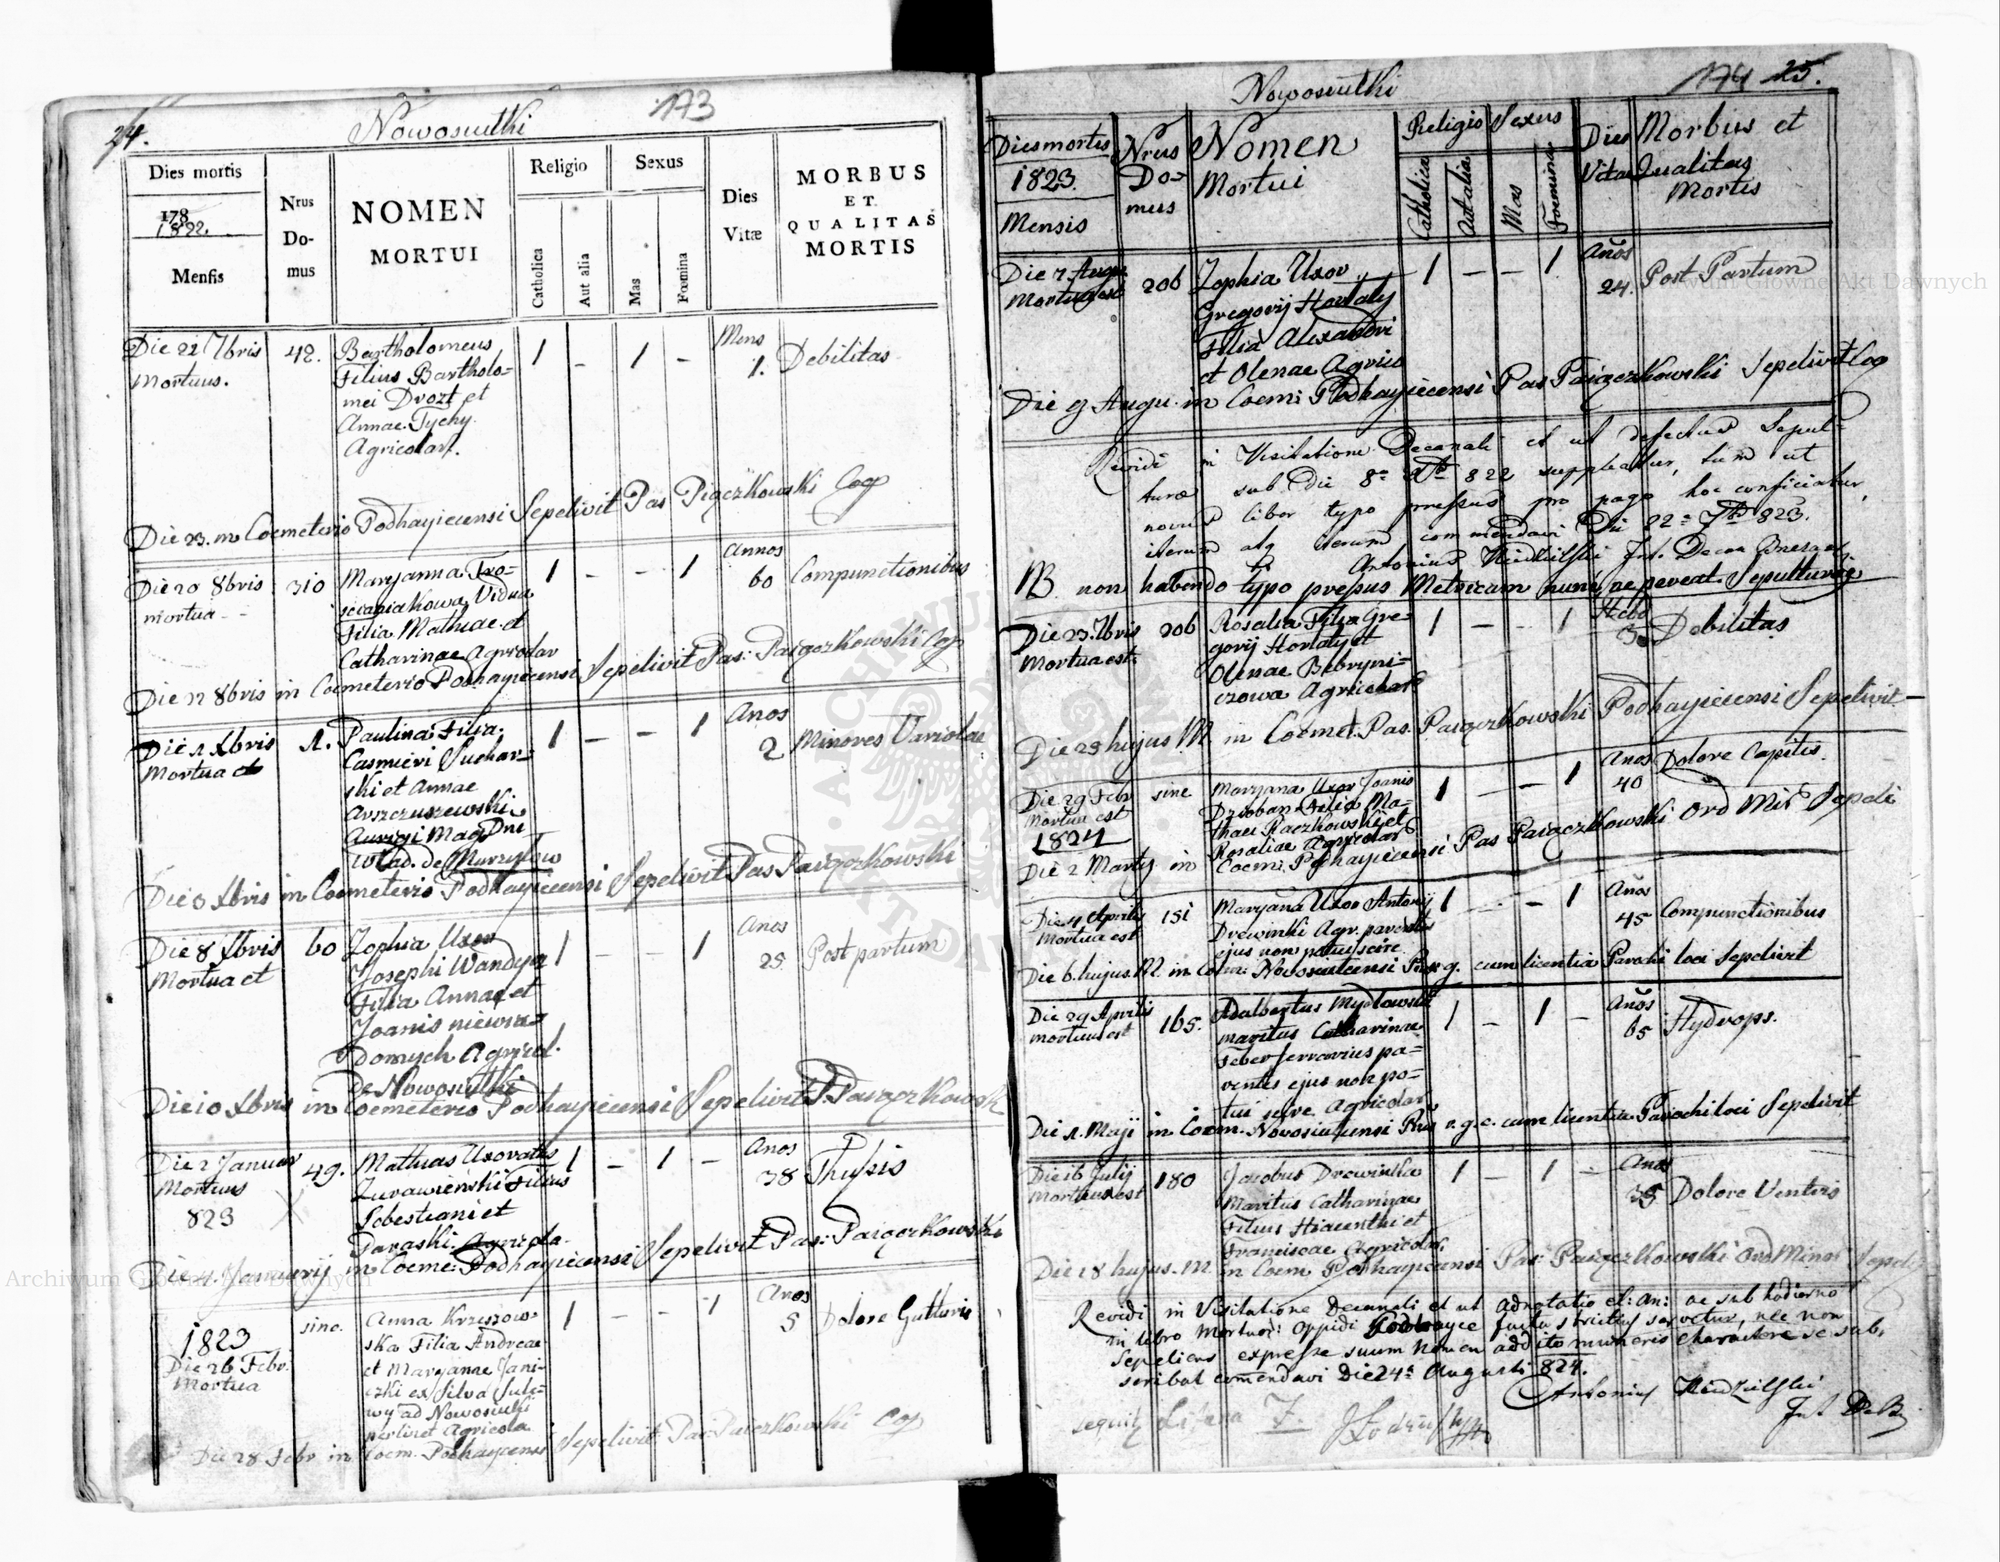 24.
Nowosiułki
173
Dies mortis
178
1822.
Mensis
Nrus
Do-
mus
NOMEN
MORTUI
Religio
Catholica
Aut alia
Sexus
Mas
Fœmina
Dies
Vitæ
MORBUS
ET
QUALITAS
MORTIS
Die 22 7bris
Mortuus.
42.
Bartholomeus
Filius Bartholo-
mei Drozt et
Annae Tychy
Agricolar.
1 - 1 -
Mens
1.
Debilitas
Die 23. in Coemeterio Podhayiecensi Sepelivit Pas Coop
Die 20 8bris
mortua
310
Maryanna
Vidua
Filia Mathiae et
Catharinae Agricolar
1 - - 1
Annos
60
Compunctionibus
8bris in Coemeterio Podhayiecensi Sepelivit Pas: Paigczkowski Cop
Die 1 Xbris
Mortua est
1.
Paulina Filia
Casmiri Suchar-
ski et Annae
Arszczuszewski
Aurigi Mag Dni
Wlad. de
1 - - 1
Anos
2
Minores Variolae
Die 3 Xbris in Coemeterio Podhayiecensi Sepelivit Pas Paigczkowski
Die 8 Xbris
Mortua est
60
Zophia Uxor
Josephi Wandyga
Filia Annae et
Joanis niewia-
domych Agricol.
de Nowosiułki
1 - - 1
Anos
25
Post partum
Die 10 Xbris in Coemeterio Podhayiecensi Sepelivit P. Paigczkowski
Die 2 Januar
Mortuus
823
49.
Mathias Uxoratus
Zurawienski Filius
Sebestiani et
Paraski Agricola
1 - 1 -
Anos
38
Thysis
Die 4 Januarij in Coeme: Podhayiecensi Sepelivit Pas: Paigczkowski
1823
Die 26 Febr.
Mortua
sine.
Anna Krzszow-
ska Filia Andreae
et Maryanae Jani-
czki ex Silva Sule-
wy ad Nowosiułki
pertinet Agricola
1 - - 1
Anos
5
Dolore Gutturis
Die 28 Febr in Coem. Podhayiecensi Sepelivit Pas Paiczkowski Cop
Nowosiułki
174 25.
Dies mortis
1823.
Mensis
Nrus
Do-
mus
Nomen
Mortui
Religio
Catholica
Aut alia
Sexus
Mas
Foemina
Dies
Vitae
Morbus et
Qualitas
Mortis
Die 7 Augu
Mortua est
206
Zophia Uxor
Gregorij Hortaty
Filia Alexandri
et Olenae Agrico
1 - - 1
Anos
24.
Post Partum
Die 9 Augu. in Coem: Podhayiecensi Pas Paigczkowski Sepelivit Cop
Revidi in Visitatione Decanali et ut defectus Sepul-
turae sub Die 8a Xbr 822 suppleatur, tum ut
novus liber typo pressus pro pago hoc conficiatur,
iterum atq iterum commendavi Die 22a 7br 823.
Antonius
NB non habendo typo pressus Metricam nunc, ne pereat Sepulturae
Die 23. 7bris
Mortua est
206
Rosalia Filia Gre-
gorij Hortaty et
Olenae Bebryni-
czowa Agricolar
1 - - 1
Hebd
3
Debilitas
Die 25 hujus M. in Coemet. Pas. Paigczkowski Podhayiecensi Sepelivit
Die 29 Febr
Mortua est
1824
sine
Maryana Uxor Joanis
Drobban Filia Ma-
thaei Raczkowski et
Rosaliae Agricolar
1 - - 1
Anos
40
Dolore Capitis.
Die 2 Martij in Coem: Podhayiecensi Pas Paigczkowski Ord Min Sepeli
Die 4 Aprilis
Mortua est
151
Maryana Uxor Antonij
Drewinski Agr. parentes
ejus non potui scire
1 - - 1
Anos
45
Compunctionibus
Die 6. hujus M. in Coem: Nowosiulcensi g. cum licentia Parochi loci Sepelivit
Die 29 Aprilis
mortuus est
165.
Adalbertus Mydlowski
maritus Catharinae
Feber ferrarius pa-
rentes ejus non po-
tui scire Agricolar
1 - 1 -
Anos
65
Hydrops.
Die 1. Maji in Coem. Novosiulcensi r. g. c. cum licentia Parochi loci Sepelivit
Die 16 Julij
Mortuus est
180
Jacobus Drewinska
Maritus Catharinae
Filius Hiacenthi et
Franciscae Agricolar.
1 - 1 -
Anos
35
Dolore Ventris
Die 18 hujus M. in Coem Podhayiecensi Pas: Paigczkowski Ord Minor Sepeli
Revidi in Visitatione Decanali et ut adnotatio et: an: ac sub hodierno
in libro Mortuor: Oppidi Podhayce facta strictius servetur, nec non
Sepeliens expresse suum nomen addito muneris charactere se sub-
scribat comendavi Die 24a Augusti 824.
Antonius